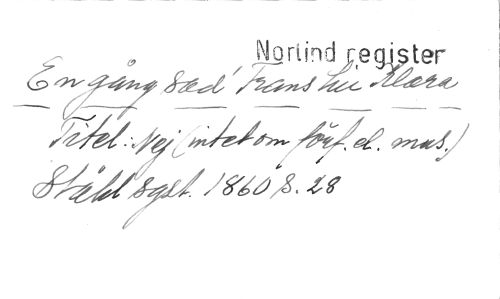 Norlind register
En gång sad' Frans till Klara
Titel: Nej (intet om förf. el. mus.)
Ståhl sgst. 1860 s. 28